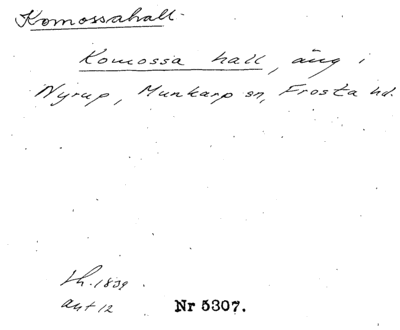 Komossahall.
Komossa hall, äng i
Nyrup, Munkarp sn, Frosta hd.
Lh. 1839.
ant 12 Nr 5307.